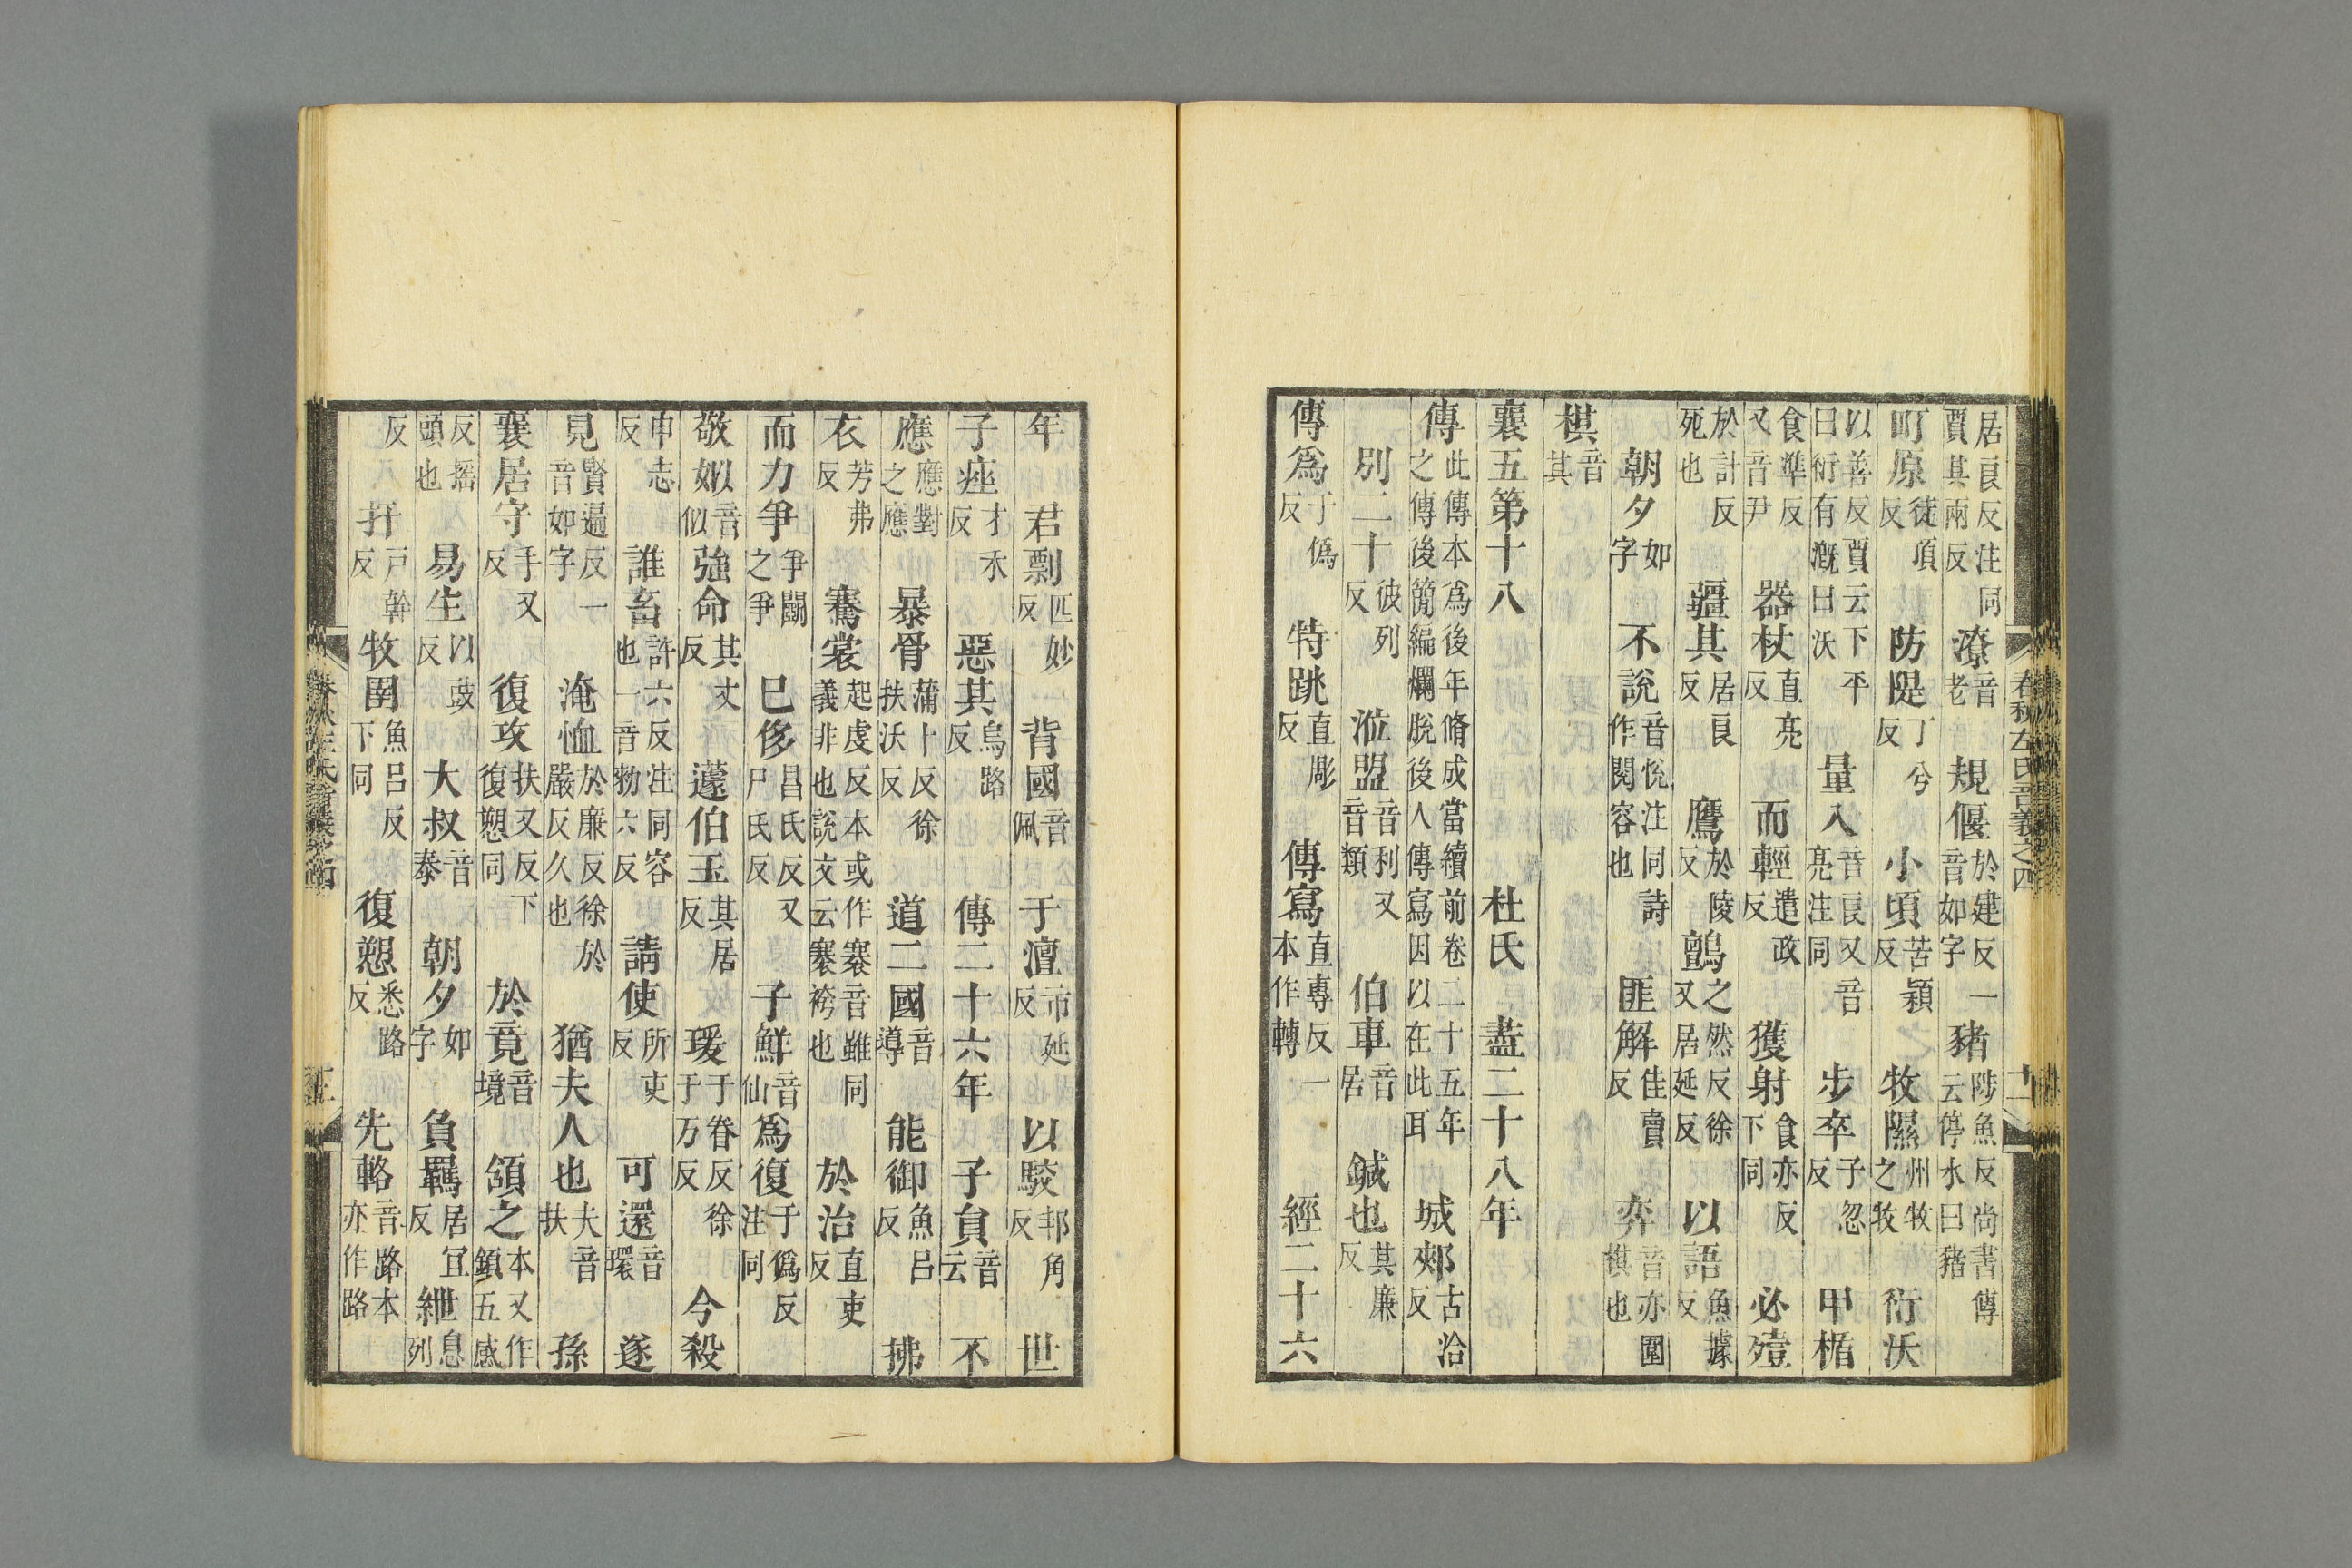 居良反注同賈其兩反 潦音老 規偃於建反一音如字 豬陟魚反尚書傳云停水曰豬
町原徒頂反 防隄丁兮反 小頃苦穎反 牧隰州牧之牧 衍沃
以善反賈云下平曰衍有漑曰沃 量入音良又音亮注同 步卒子忽反 甲楯
食準反又音尹 器杖直亮反 而輕遣政反 獲射食亦反下同 必殪
於計反死也 疆其居良反 鷹於陵反 鸇之然反徐又居延反 以語魚據反
朝夕如字 不說音悅注同詩作閱容也 匪解佳賣反 弈音亦圍棋也
棋音其
襄五第十八 杜氏 盡二十八年
傳此傳本爲後年脩成當續前卷二十五年之傳後簡編爛脫後人傳寫因以在此耳 城郟古洽反
別二十彼列反 涖盟音利又音類 伯車音居 鍼也其廉反
傳爲于僞反 特跳直彫反 傳寫直專反一本作轉 經二十六
年 君剽匹妙反 背國音佩 于澶市延反 以駮邦角反 世
子痤才禾反 惡其烏路反 傳二十六年 子員音云 不
應應對之應 暴骨蒲卜反徐扶沃反 道二國音導 能御魚呂反 拂
衣芳弗反 騫裳起虔反本或作褰音雖同義非也說文云褰袴也 於治直吏反
而力爭爭鬬之爭 已侈昌氏反又尸氏反 子鮮音仙 爲復于僞反注同
敬姒音似 強命其丈反 蘧伯玉其居反 瑗于眷反徐于万反 今殺
申志反 誰畜許六反注同容也一音勑六反 請使所吏反 可還音環 遂
見賢遍反一音如字 淹恤於廉反徐於嚴反久也 猶夫人也夫音扶 孫
襄居守手又反 復攻扶又反下復愬同 於竟音境 頷之本又作顉五感
反搖頭也 易生以豉反 大叔音泰 朝夕如字 負羈居宜反 紲息列
反 扞戶幹反 牧圉魚呂反下同 復愬悉路反 先輅音路本亦作路
春秋左氏音義之四